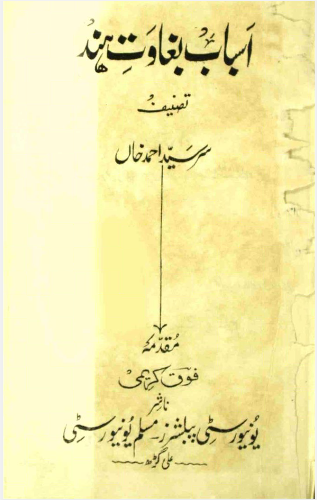 اسباب بغاوتِ ہند
تصنیف
سر سیّد احمد خاں
مُقدمہ
فوق کریمی
ناشر
یُونیورسٹی پبلشرز۔ مسلم یُونیورسٹی
علی گڑھ